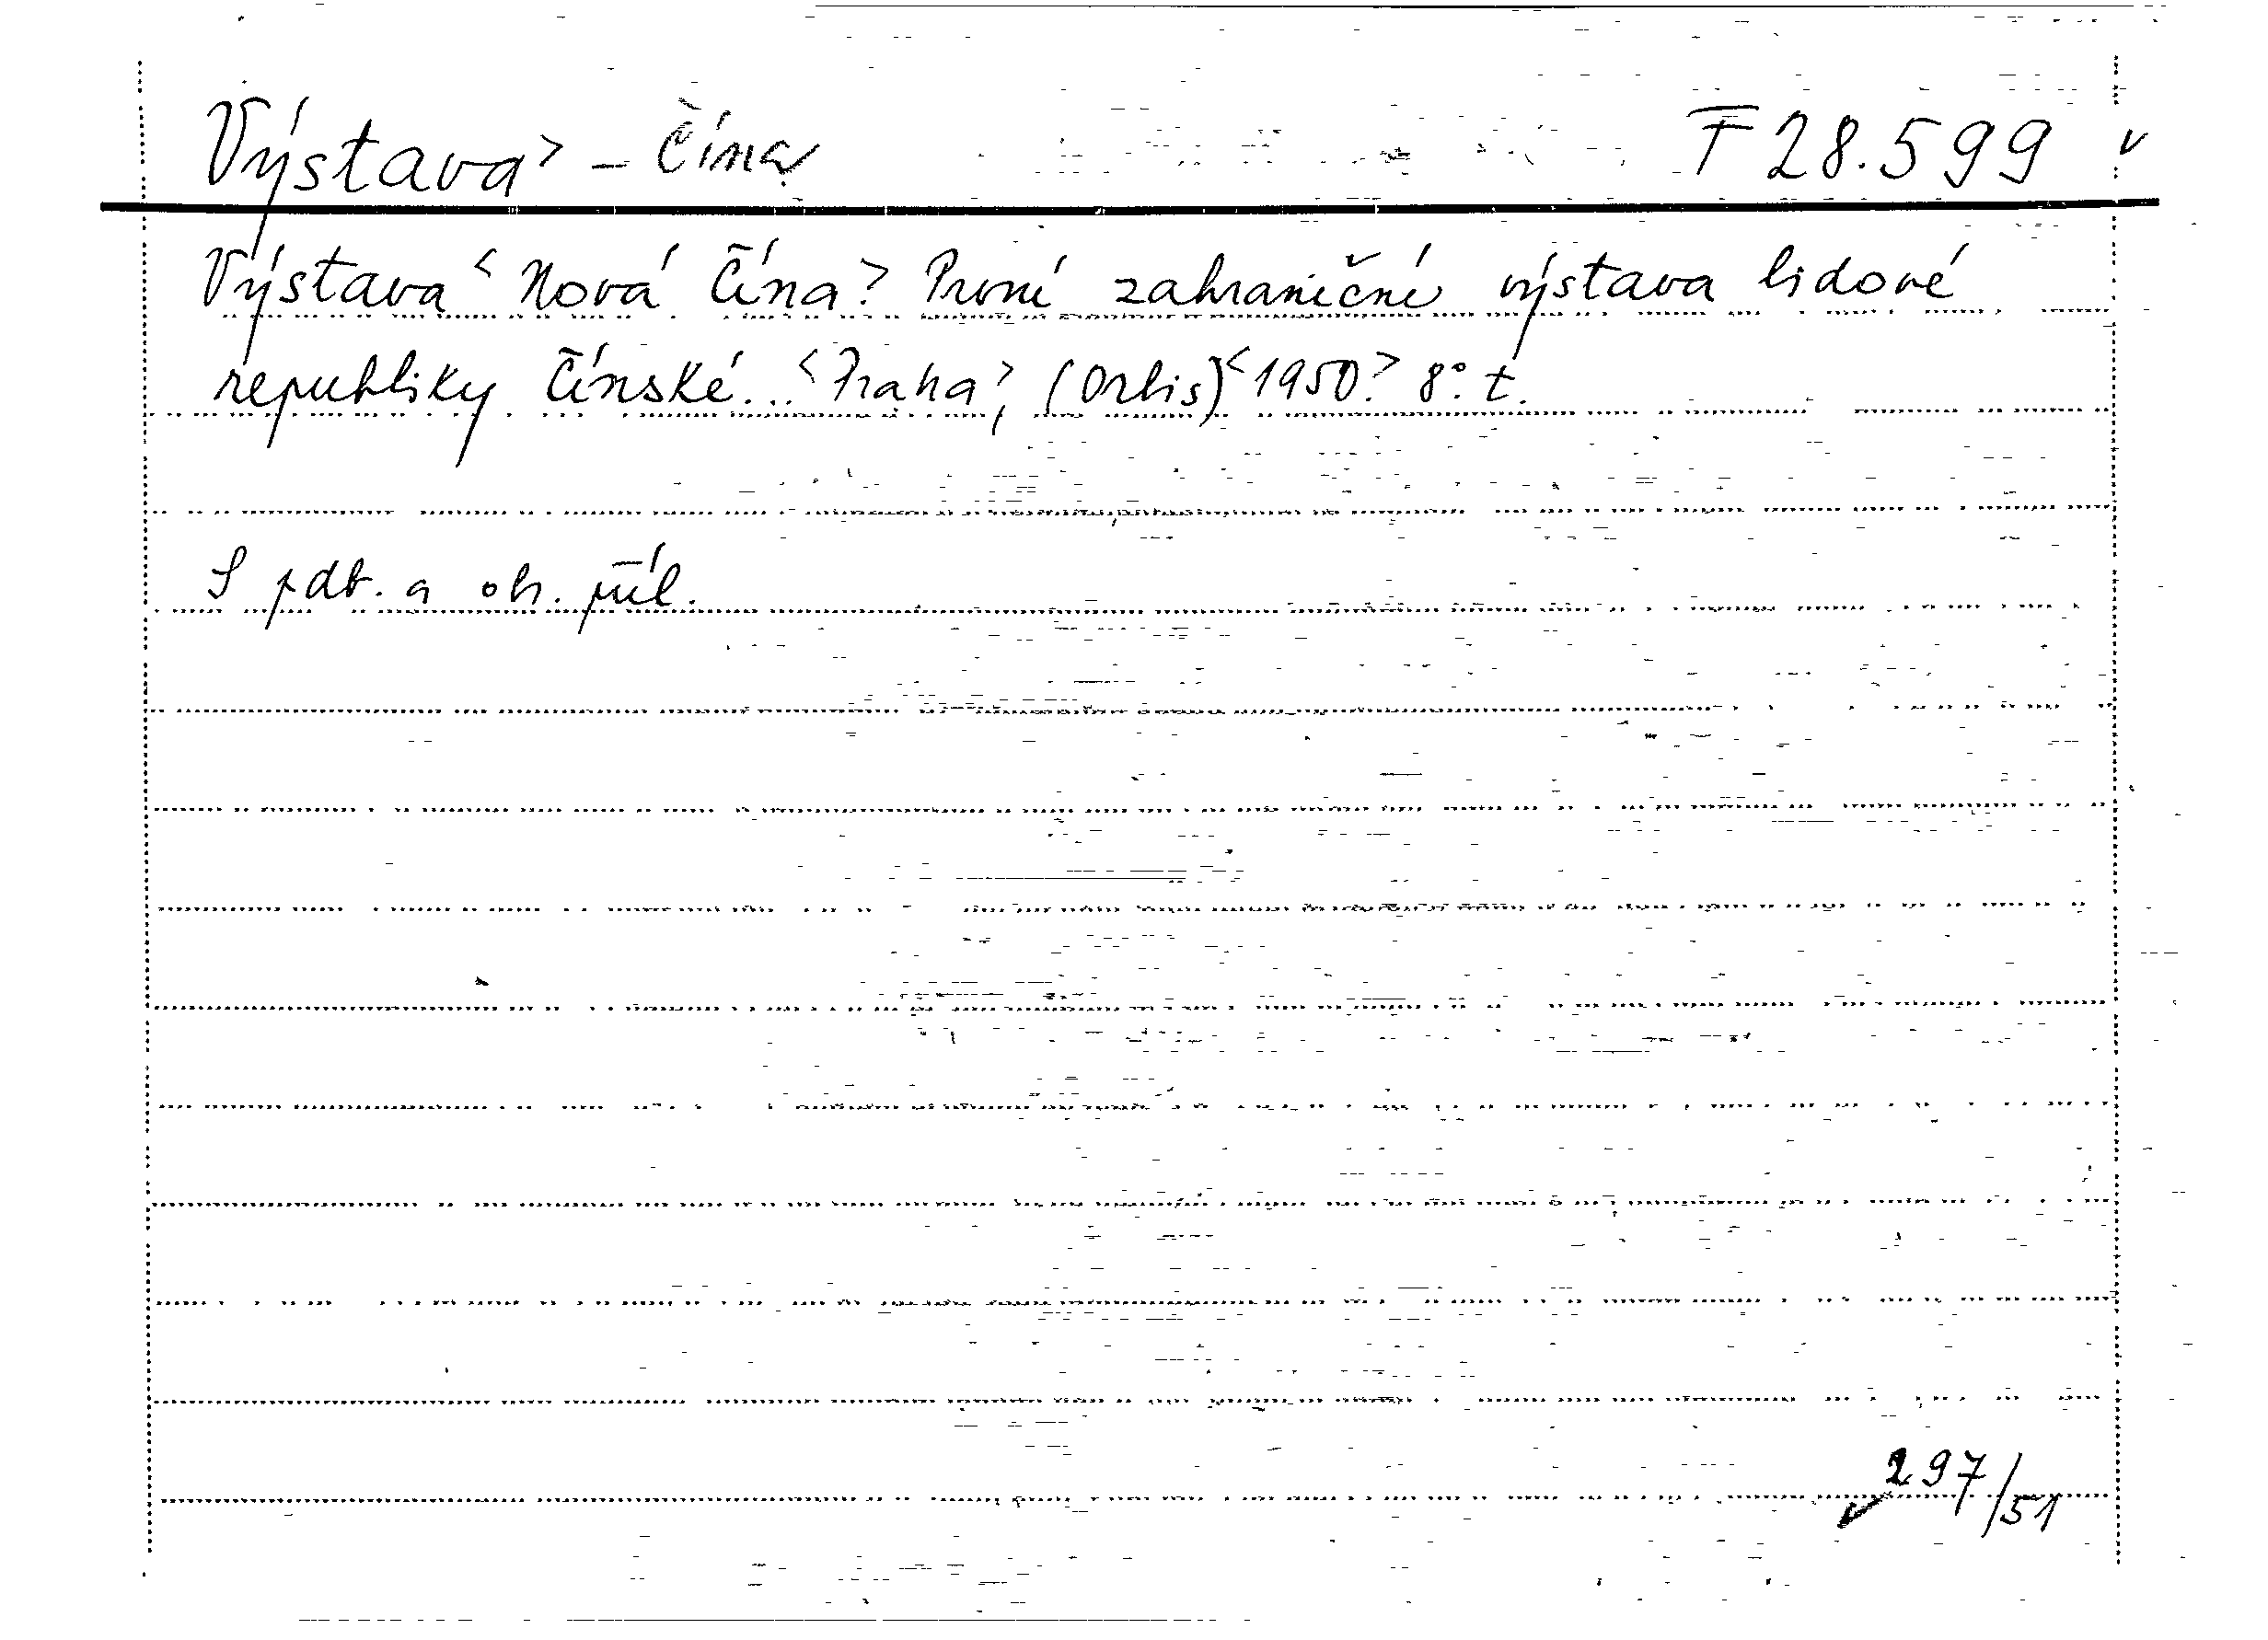 Výstava> – Čína F 28.599 v
Výstava <Nová Čína>. První zahraniční výstava lidové
republiky Čínské... <Praha>, (Orbis) <1950>. 8°. t.
S pdb. a ob. příl.
297/51